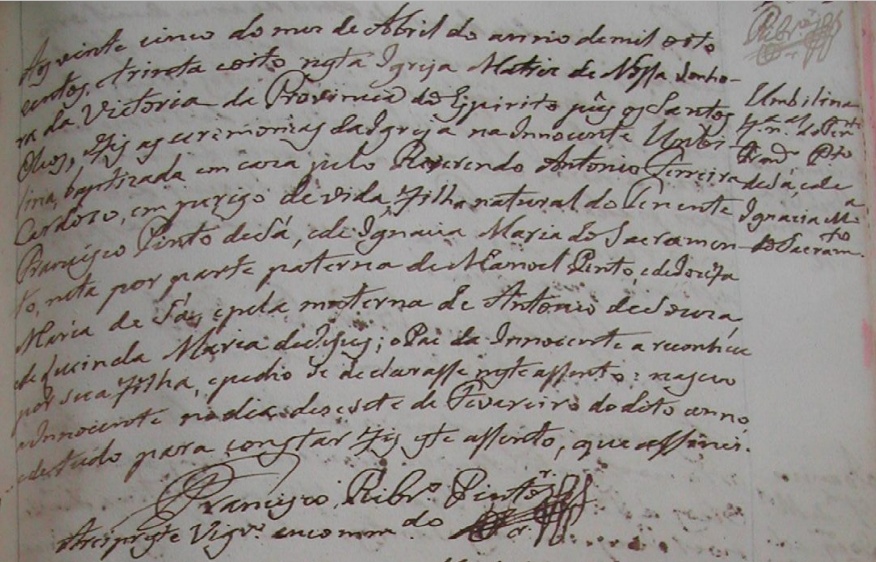 Aos vinte cinco do mez de Abril do anno de mil oito
centos, e trinta e oito nesta Igreja Matriz de Nossa Senho-
ra da Victoria da Provincia do Espirito pus os Santos
Oleos, e fiz as ceremonias da Igreja na Innocente Umbi-
lina, baptizada em caza pelo Reverendo Antonio Ferreira
Cardozo, em perigo de vida, filha natural do Tenente
Francisco Pinto de Sá, e de Ignacia Maria do Sacramen-
to, neta por parte paterna de Manoel Pinto, e de Josefa
Maria de Sá, e pela materna de Antonio de Souza,
e de Lucinda Maria de Jesus; o Pai da Innocente a reconheceu
por sua filha, e pedio se declarasse neste assento: nasceu
a Innocente no dia dezesete de Fevereiro do dito anno,
e de tudo para constar fiz este assento, que assinei.
Francisco Ribro. Pinto
Arcipreste Vigro. encommdo
Ribro
Umbilina
f. n. do Tente
Francdo Pto
de Sá, e de
Ignacia Ma
do Sacramto